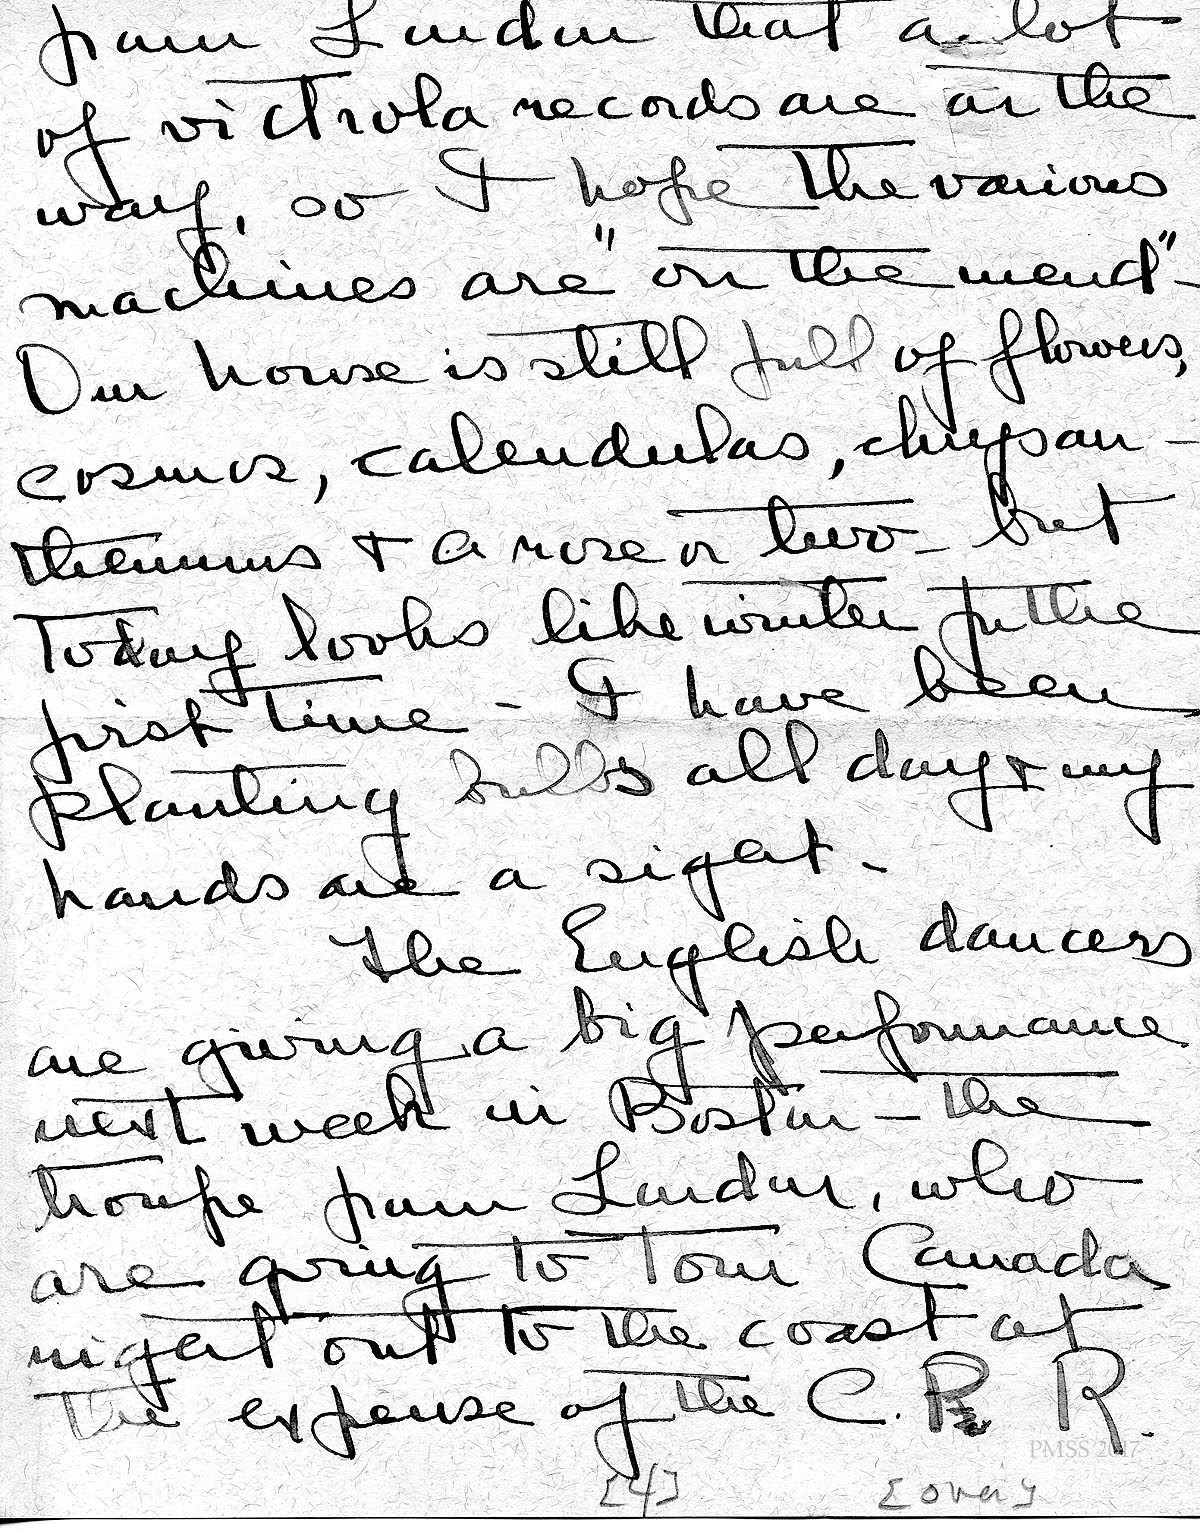 from London that a lot
of victrola records are on the
way, so I hope the various
machines are "on the mend" -
Our house is still full of flowers,
cosmos, calendulas, chrysan -
themums & a rose or two - but
Today looks like winter for the
first time - I have been
planting bulbs all day & my
hands are a sight -
The English dancers
are giving a big performance
next week in Boston - the
troupe from London, who
are going to tour Canada
right out to the coast at
the expense of the C. P. R.
PMSS 2017
[4] [over]